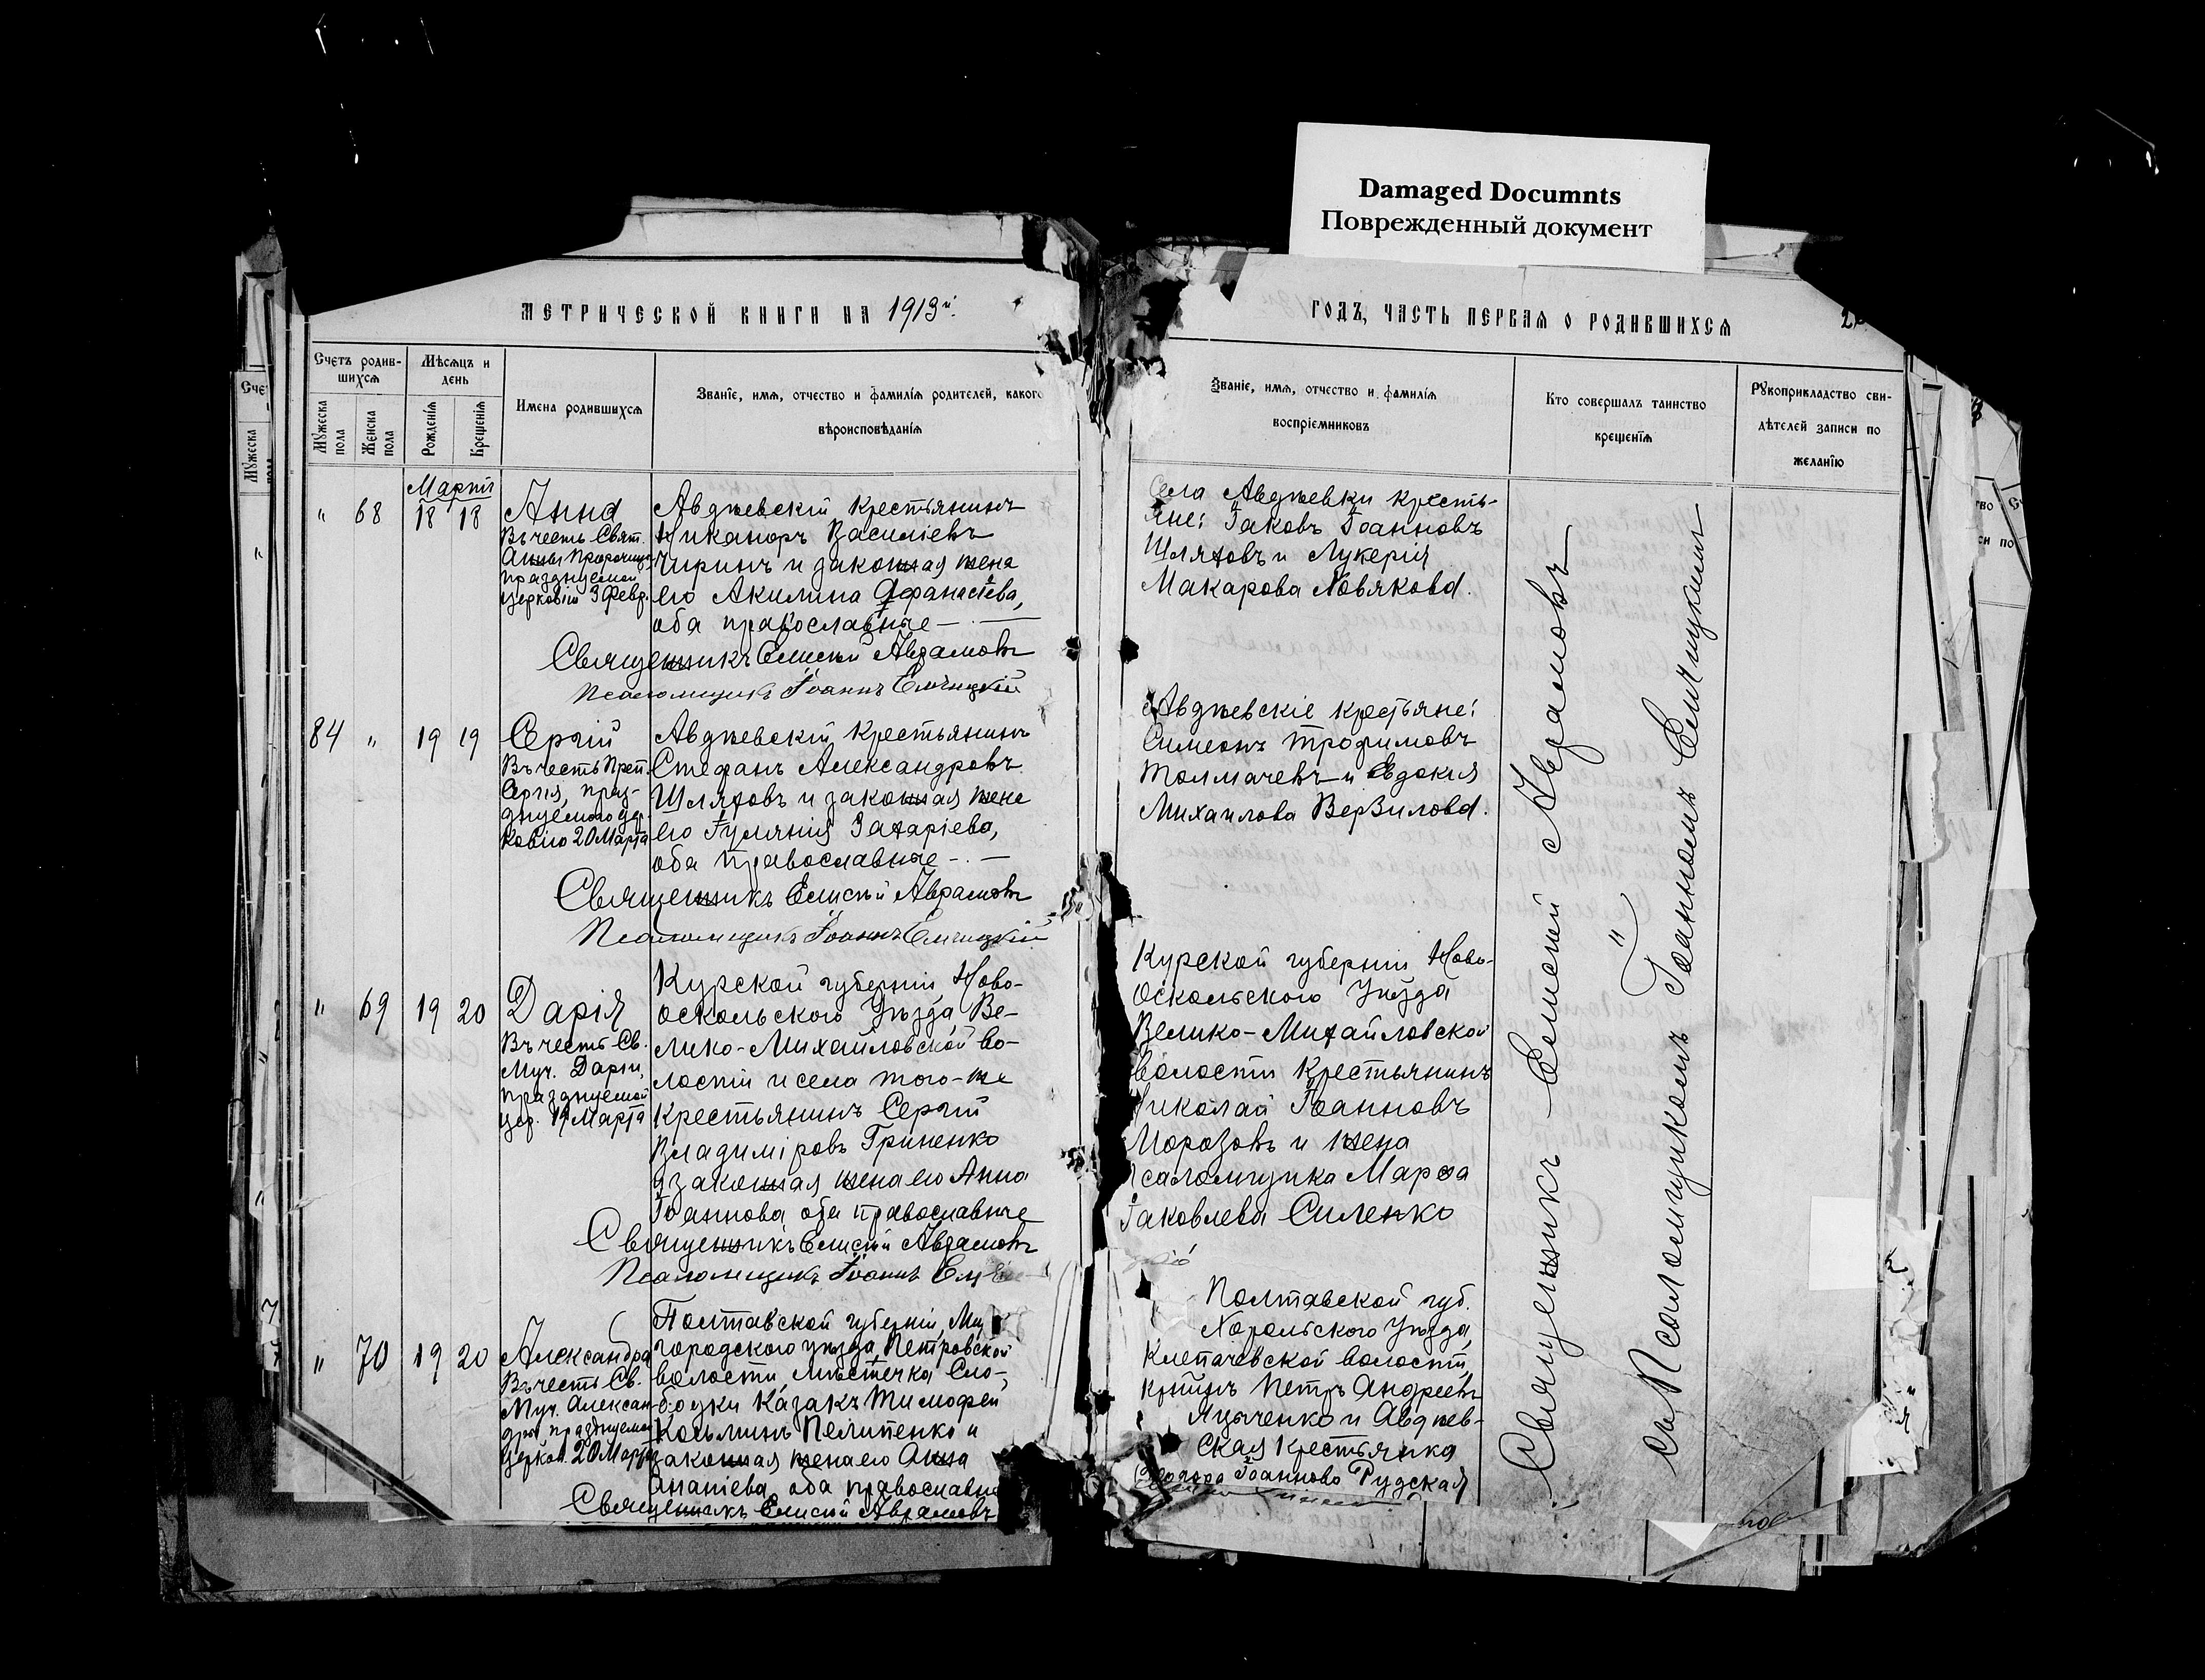 Damaged Documnts
Поврежденный документ
МЕТРИЧЕСКОЙ КНИГИ НА 1913й.
Счетъ родив-
шихся
Мѣсяцъ и
день
Мужеска
пола
Женска
пола
Рожденія
Крещенія
Имена родившихся
Званіе, имя, отчество и фамилія родителей, какого
вѣроисповѣданія
Мартъ
" 68 18 18
Анна
Въ честь Свят.
Анны Пророчицы
празднуемой
церковію 3 Февр.
Авдѣевскій крестьянинъ
Никаноръ Василіевъ
Чиринъ и законная жена
его Акилина Афанасіева,
оба православные
Священникъ Елисей Аврамовъ
Псаломщикъ Іоаннъ Емчицкій
84 " 19 19
Сергій
Въ честь Преп.
Сергія, праз-
днуемаго цер-
ковію 20 Марта
Авдѣевскій крестьянинъ
Стефанъ Александровъ
Шляховъ и законная жена
его Іуліанія Захаріева,
оба православные
Священникъ Елисей Аврамовъ
Псаломщикъ Іоаннъ Емчицкій
" 69 19 20
Дарія
Въ честь Св.
Муч. Даріи,
празднуемой
цер. 19 Марта
Курской губерніи Ново-
оскольского Уѣзда, Ве-
лико-Михайловской во-
лости и села того-же
крестьянинъ Сергій
Владиміровъ Гриненко
и законная жена его Анна
Іоаннова оба православные
Священникъ Елисей Аврамовъ
Псаломщикъ Іоаннъ
" 70 19 20
Александра
Въ честь Св.
Муч. Алексан-
дры, празднуемой
церков. 20 Марта
Полтавской губерніи, Ми
городского уѣзда, Петровской
волости, мѣстечка Сло-
бодки казакъ Тимофей
Козьминъ Пелипенко и
законная жена его Анна
Ананіева, оба православны
Священникъ Елисей Аврамовъ
ГОДЪ, ЧАСТЬ ПЕРВАЯ О РОДИВШИХСЯ
Званіе, имя, отчество и фамилія
воспріемниковъ
Кто совершалъ таинство
крещенія
Рукоприкладство сви-
дѣтелей записи по
желанію
Села Авдѣевки кресть-
яне: Іаковъ Іоанновъ
Шляховъ и Лукерія
Макарова Новякова.
Авдѣевскіе крестьяне:
Симеонъ Трофимовъ
Толмачевъ и Евдокія
Михаилова Вервилова.
Курской губерніи Ново-
Оскольского Уѣзда
Велико-Михайловской
волости крестьянинъ
Николай Іоанновъ
Морозовъ и жена
псаломщика Марфа
Іаковлева Силенко
Полтавской губ.
Хорольского Уѣзда,
Клепачевской волости,
Петръ Андреевъ
Яценко и Авдѣев-
ская крестьянка
Іоаннова Рудская
Священникъ Елисей Аврамовъ
съ Псаломщикомъ Іоанномъ Емчицкимъ